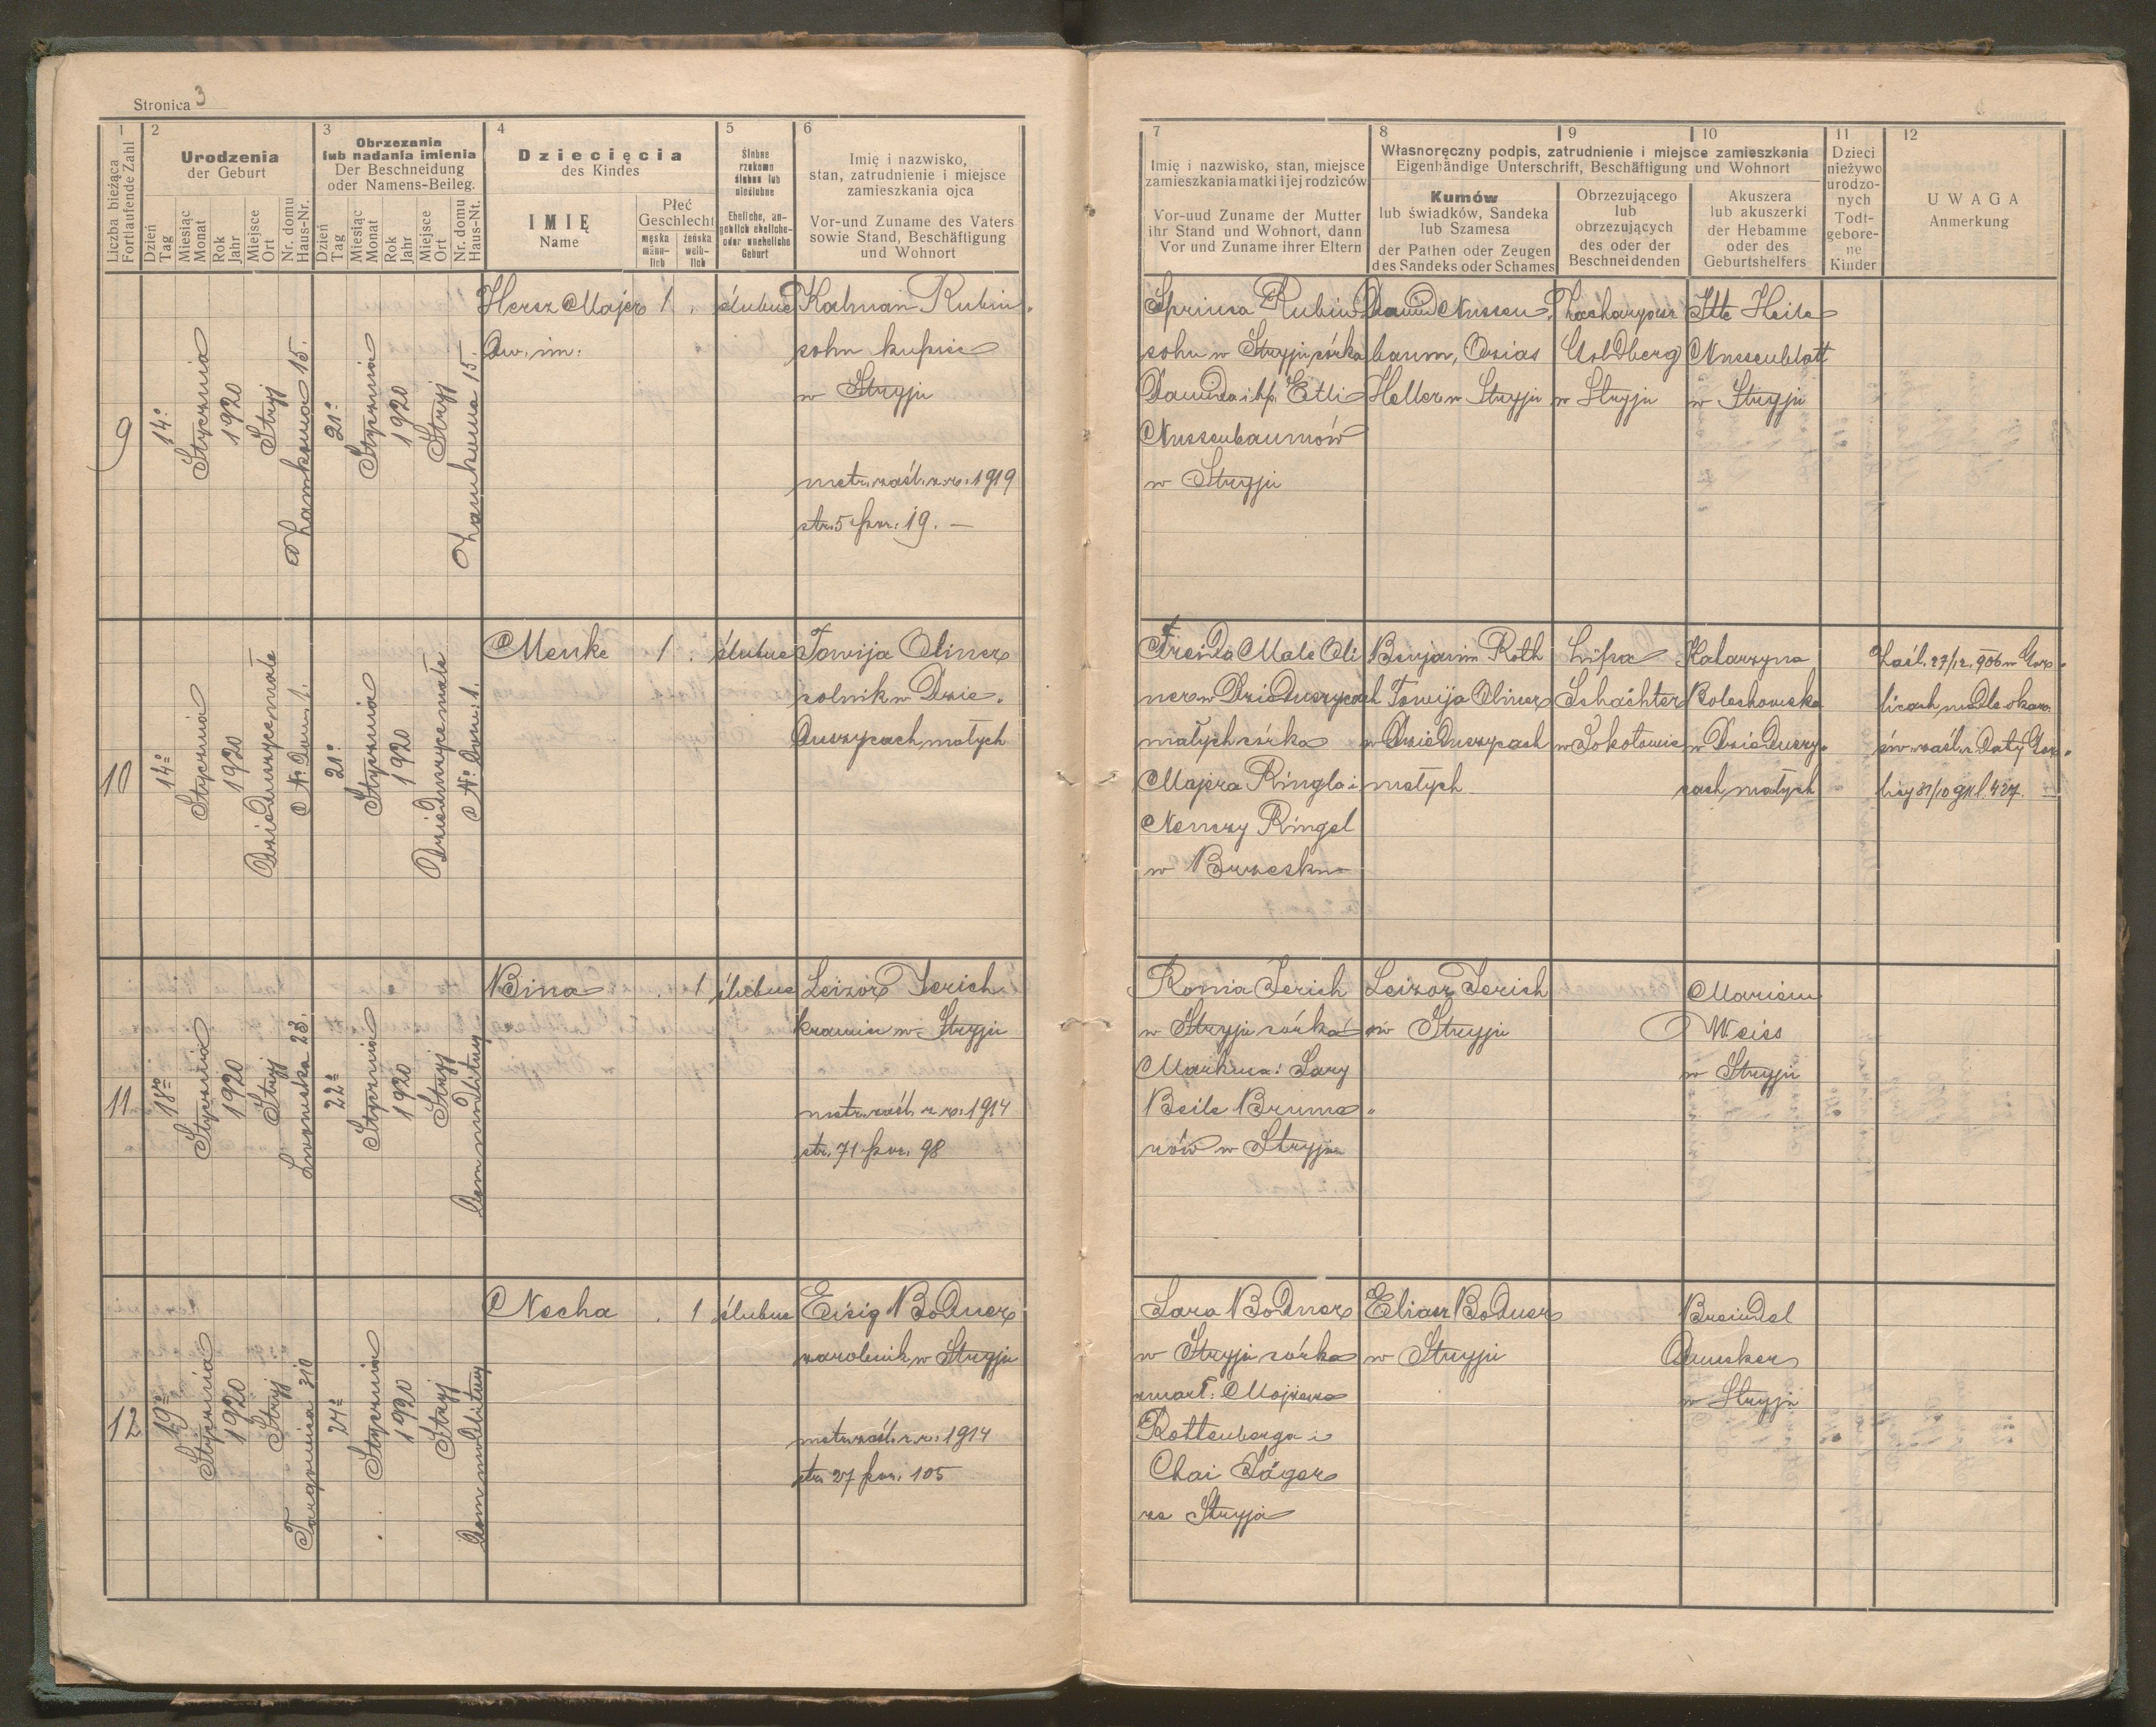 Stronica 3
1
Liczba bieżąca
Fortlaufende Zahl
2
Urodzenia
der Geburt
Dzień
Tag
Miesiąc
Monat
Rok
Jahr
Miejsce
Ort
Nr. domu
Haus-Nr.
3
Obrzezania
lub nadania imienia
Der Beschneidung
oder Namens-Beileg.
Dzień
Tag
Miesiąc
Monat
Rok
Jahr
Miejsce
Ort
Nr. domu
Haus-Nt.
4
Dziecięcia
des Kindes
IMIĘ
Name
Płeć
Geschlecht
męska
männ-
lich
żeńska
weib-
lich
5
Ślubne
rzekomo
ślubne lub
nieślubne
Eheliche, an-
geblich eheliche-
oder uneheliche
Geburt
6
Imię i nazwisko,
stan, zatrudnienie i miejsce
zamieszkania ojca
Vor-und Zuname des Vaters
sowie Stand, Beschäftigung
und Wohnort
7
Imię i nazwisko, stan, miejsce
zamieszkania matki i jej rodziców
Vor-uud Zuname der Mutter
ihr Stand und Wohnort, dann
Vor und Zuname ihrer Eltern
8
9
10
Własnoręczny podpis, zatrudnienie i miejsce zamieszkania
Eigenhändige Unterschrift, Beschäftigung und Wohnort
Kumów
lub świadków, Sandeka
lub Szamesa
der Pathen oder Zeugen
des Sandeks oder Schames
Obrzezującego
lub
obrzezujących
des oder der
Beschneidenden
Akuszera
lub akuszerki
der Hebamme
oder des
Geburtshelfers
11
Dzieci
nieżywo
urodzo-
nych
Todt-
gebore-
ne
Kinder
12
UWAGA
Anmerkung
9
14º
Stycznia
1920
Stryj
Zamkowa 15.
21º
Stycznia
1920
Stryj
Zamkowa 15.
Hersz Majer
Dw. im:
1 .
ślubne
Kalman Rubin
sohn kupiec
w Stryju
metr. zaśl. z r. 1919
str. 5 poz. 19. —
Sprinca Rubin
sohn w Stryju córka
Dawida i Etli
Nussenbaumów
w Stryju
Dawid Nussen
baum, Ozias
Heller w Stryju
Zacharyasz
Goldberg
w Stryju
Itte Heile
Nussenblatt
w Stryju
10
14º
Stycznia
1920
Dzieduszyce małe
Nº Dom. 1.
21º
Stycznia
1920
Dzieduszyce małe
Nº Dom: 1.
Menke
1 .
ślubne
Towija Oliner
rolnik w Dzie
duszycach małych
Freida Male Oli
ner w Dzieduszycach
małych córka
Majera Ringla i
Nenczy Ringel
w Brzesku
Benjamin Roth
Towija Oliner
w Dzieduszycach
małych
Lipa
Schächter
w Sokołowie
Katarzyna
Bolechowska
w Dzieduszy
cach małych
Zaśl. 27/12. 906 w Gor
licach wedle okaz.
św. zaśl. z daty Gor
lice 31/10 l. 427.
11
18º
Stycznia
1920
Stryj
Lwowska 23.
22º
Stycznia
1920
Stryj
Dom modlitwy
Bina
. 1
ślubne
Leizor Jerich
kramarz w Stryju
metr. zaśl. z r. 1914
str. 71 poz. 98
Romia Jerich
w Stryju córka
Markusa i Sary
Beile Bruma
rów w Stryju
Leizor Jerich
w Stryju
Mariem
Weiss
w Stryju
12
19º
Stycznia
1920
Stryj
Targowica 310
24º
Stycznia
1920
Stryj
Dom modlitwy
Necha
. 1
ślubne
Eisig Bodner
zarobnik w Stryju
metr. zaśl. z r. 1914
str. 27 poz. 105
Sara Bodner
w Stryju córka
zmarł. Mojżesza
Rottenberga i
Chai Jäger
ze Stryja
Eliasz Bodner
w Stryju
Breindel
Drucker
w Stryju